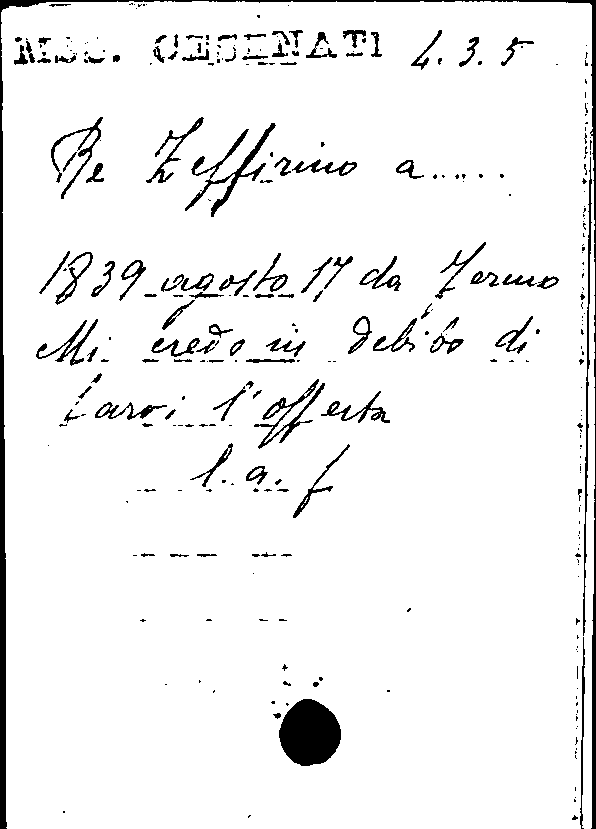 MSS. CESENATI 4.3.5
Re Zeffirino a.....
1839 agosto 17 da Fermo
Mi credo in debito di
farvi l'offerta
l. a. f